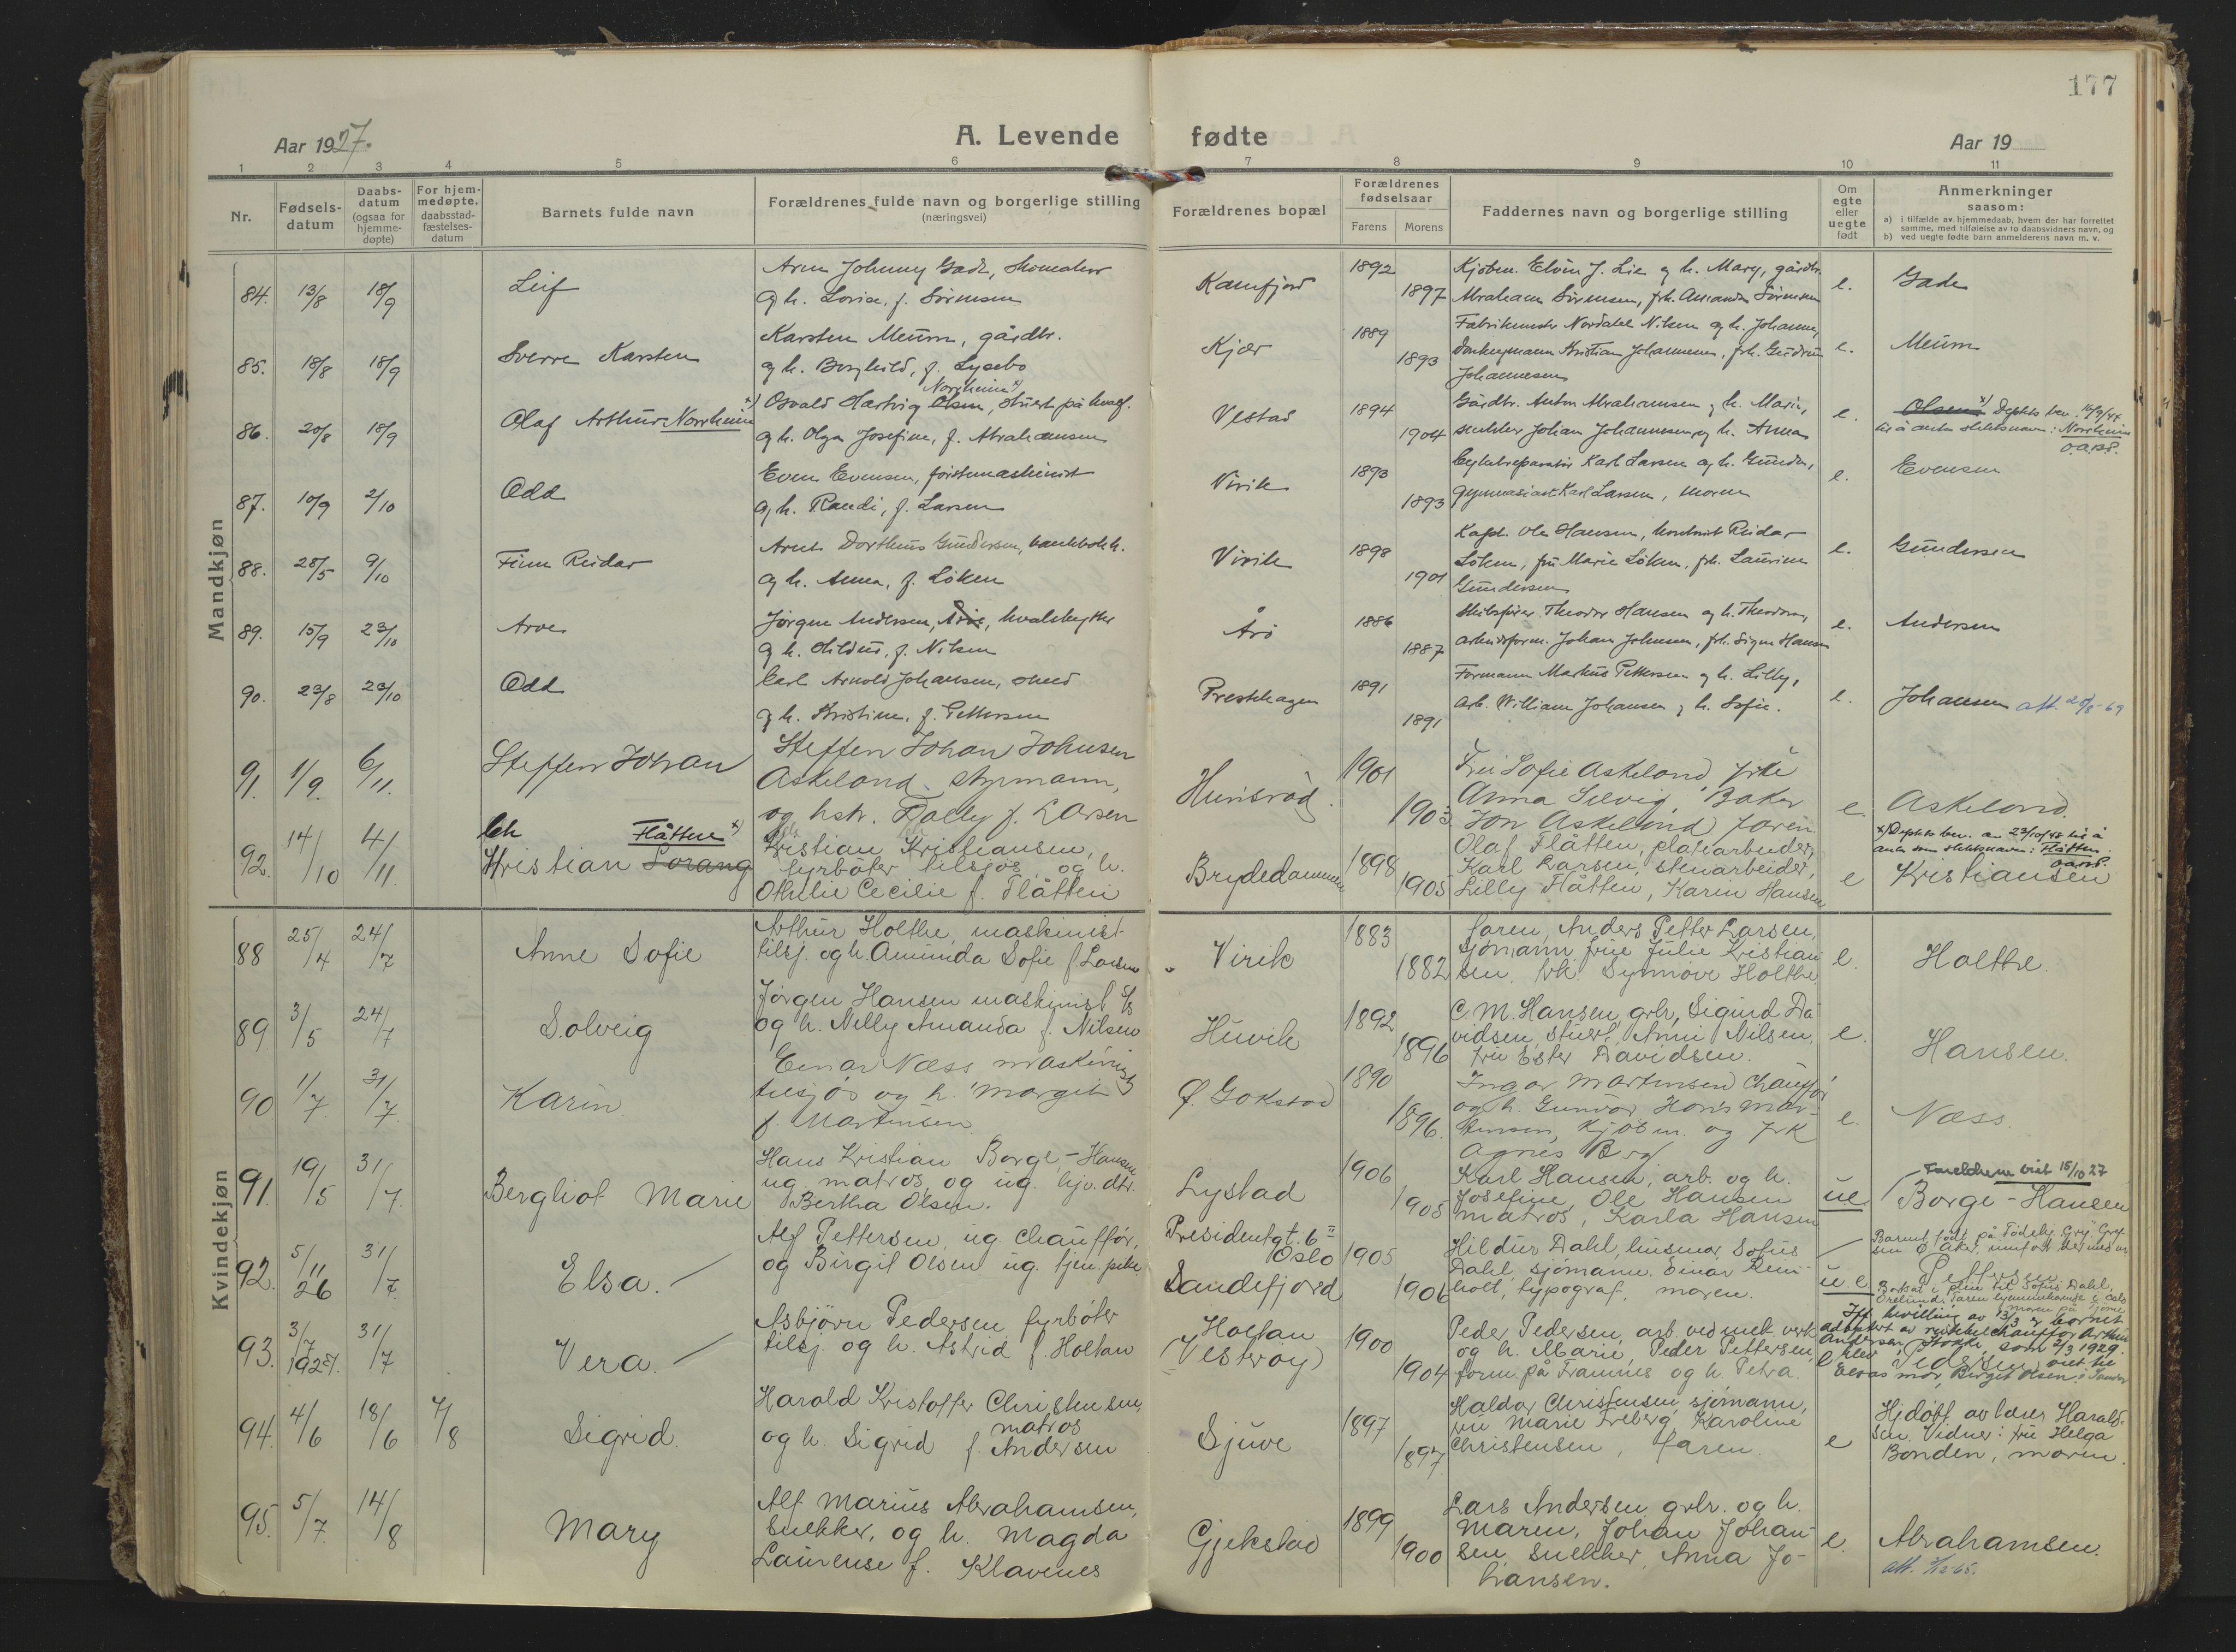 177
Aar 1927.
A. Levende fødte
Aar 19
1 2 3 4 5 6 7 8 9 10 11
Nr.
Fødsels-
datum
Daabs-
datum
(ogsaa for
hjemme-
døpte)
For hjem-
medøpte,
daabsstad-
fæstelses-
datum
Barnets fulde navn
Forældrenes fulde navn og borgerlige stilling
(næringsvei)
Forældrenes bopæl
Forældrenes
fødselsaar
Farens Morens
Faddernes navn og borgerlige stilling
Om
egte
eller
uegte
født
Anmerkninger
saasom:
a) i tilfælde av hjemmedaab, hvem der har forrettet
samme, med tilføielse av to daabsvidners navn, og
b) ved uegte fødte barn anmelderens navn m. v.
Mandkjøn
84. 13/8 18/9
Leif
Johnny Gade,
og h. Lovise, f. Sörensen
Kamfjord
1892
1897
Kjøbm. Elvin J. Lie og h. Mary, gårdbr.
Abraham Sörensen, frk. Amanda Sörensen
e.
Gade
85. 18/8 18/9
Sverre Karsten
Karsten Meum, gårdbr.
og h. Borghild, f. Lysebo
Kjær
1889
1893
Nilsen og h. Johanne,
Kristian Johannesen, frk. Gudrun
Johannesen
e.
Meum
86. 20/8 18/9
Olaf Arthur Norrheim x)
Norrheim x)
Osvald Hartvig Olsen, stuert på hvalf.
og h. Olga Josefine, f. Abrahamsen
Vestad
1894
1904
Gårdbr. Anton Abrahamsen og h. Marie,
snekker Johan Johannesen og h. Anna
e.
Olsen x) Depkts bev. 16/3/44
til å anta slektsnavn: Norrheim
87. 10/9 2/10
Odd
Even Evensen, förstemaskinist
og h. Randi, f. Larsen
Virik
1893
1893
Cykelreparatör Karl Larsen og h. Gunda,
gymnasiast Karl Larsen, moren
e.
Evensen
88. 28/5 9/10
Finn Reidar
Arnt Dortheus Gundersen,
og h. Anna, f. Löken
Virik
1898
1901
Kapt. Ole Hansen, Reidar
Löken, fru Marie Löken, frk. Laurine
Gundersen
e.
Gundersen
89. 15/9 23/10
Arve
Jörgen Andersen, hvalskytter
og h. Hildur, f. Nilsen
Årö
1886
1887
Skibsförer Theodor Hansen og h. Theodora,
arbeidsform. Johan Johnsen, frk. Signe Hansen
e.
Andersen
90. 23/8 23/10
Odd
Carl Arnold Johansen, smed
og h. Kristine, f. Pettersen
Prestehagen
1891
1891
Formann Markus Pettersen og h. Lilly,
arb. William Johansen og h. Sofie.
e.
Johansen att. 20/8-69
91. 1/9. 6/11.
Steffen Johan
Steffen Johan Johnsen
Askeland, styrmann,
og hstr. Dolly f. Larsen
Hunsröd.
1901
1903
Fru Sofie Askeland frk.
Anna Selvig, Baker
Jon Askeland faren
e
Askeland.
92. 14/10 4/11.
Ch Flåtten x)
Kristian Lorang
Kristian Kristiansen,
fyrböter tilsjös og h.
Othilie Cecilie f. Flåtten
Brydedammen
1898
1905
Olaf Flåtten, platearbeider,
Karl Larsen, stenarbeider,
Lilly Flåtten, Karin Hansen
e
x) Depkts bev. av 23/10/48 til å
anta som slektsnavn: Flåtten.
Kristiansen
Kvindekjøn
88 25/4 24/7
Anne Sofie
Arthur Holthe, maskinist
tilsj. og h. Amunda Sofie f. Larsen
Virik
1883
1882
faren, Anders Petter Larsen,
sjömann, frue Julie Kristian
sen, frk. Synnöve Holthe
e.
Holthe.
89. 3/5 24/7
Solveig
Jörgen Hansen maskinist t/s
og h. Nelly Amanda f. Nilsen
Huvik
1892
1896
C. M. Hansen grb, Sigurd Da
vidsen, stuert, Anni Nilsen,
fru Ester Davidsen.
e.
Hansen.
90 1/7 31/7.
Karin.
Einar Næss maskinist
tilsjös og h. Margit
f. Martinsen
Ø. Gokstad
1890
1896.
Ingar Martinsen chauffør
og h. Gunvor, Mar-
tinsen, Kjöbm. og frk
Agnes Berg
e.
Næss.
91. 19/5 31/7.
Bergliot Marie
Hans Kristian Borge-Hansen
ug. matros, og ug. hjv. dtr.
Bertha Olsen.
Lystad
1906
1905
Karl Hansen, arb. og h.
Josefine, Ole Hansen
matros, Karla Hansen
u.e.
Foreldrene viet 15/10 27
Borge-Hansen
92. 5/11 26 31/7.
Elsa.
Alf Pettersen, ug. chauffør,
og Birgit Olsen ug. tjen. pike
Presidentgt. 6 II
Oslo
Sandefjord
1905
1906
Hildur Dahl, husmor, Sofus
Dahl, sjömann, Einar
holt, typograf, moren.
u.e.
Pettersen
93. 3/7 1927. 31/7
Vera.
Asbjörn Pedersen fyrböter
tilsj. og h. Astrid f. Holtan
Holtan
(Vesterøy)
1900
1904
Peder Pedersen, arb. ved mek. verk
og h. Marie, Peder Pettersen,
form. på Framnes og h. Petra.
e
Pedersen
94. 4/6 18/6 7/8
Sigrid.
Harald Kristoffer Christensen,
matros
og h. Sigrid f. Andersen
Sjuve
1897
1897.
Haldor Christensen, sjömann,
fru Marie Freberg, Karoline
Christensen, faren.
e
Hjdöpt av lærer Harald-
sen. Vidner: fru Helga
Bonden, moren.
95. 5/7. 14/8
Mary
Alf Marius Abrahamsen,
snekker, og h. Magda
Laurense f. Klavenes
Gjekstad
1899
1900
Lars Andersen grbr. og h.
Maren, Johan Johan-
sen snekker, Anna Jo-
hansen.
e.
Abrahamsen.